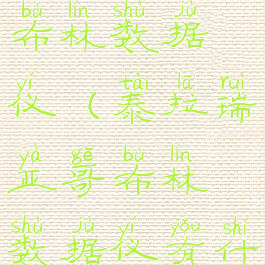 bù lín shù jù
布林数据
yí tài lā ruì
仪（泰拉瑞
yà gē bù lín
亚哥布林
shù jù yí yǒu shí
数据仪有什